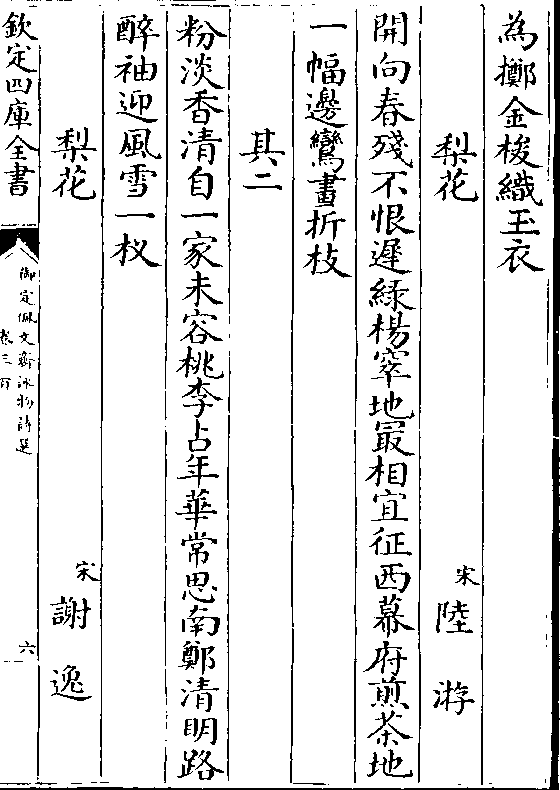 為擲金梭織玉衣
梨花 宋 陸游
開向春殘不恨遲綠楊窣地最相宜征西幕府煎茶地
一幅邊鸞畫折枝
其二
粉淡香清自一家未容桃李占年華常思南鄭清明路
醉袖迎風雪一杈
梨花 宋 謝逸
欽定四庫全書
御定佩文齋詠物詩選
卷三百
六